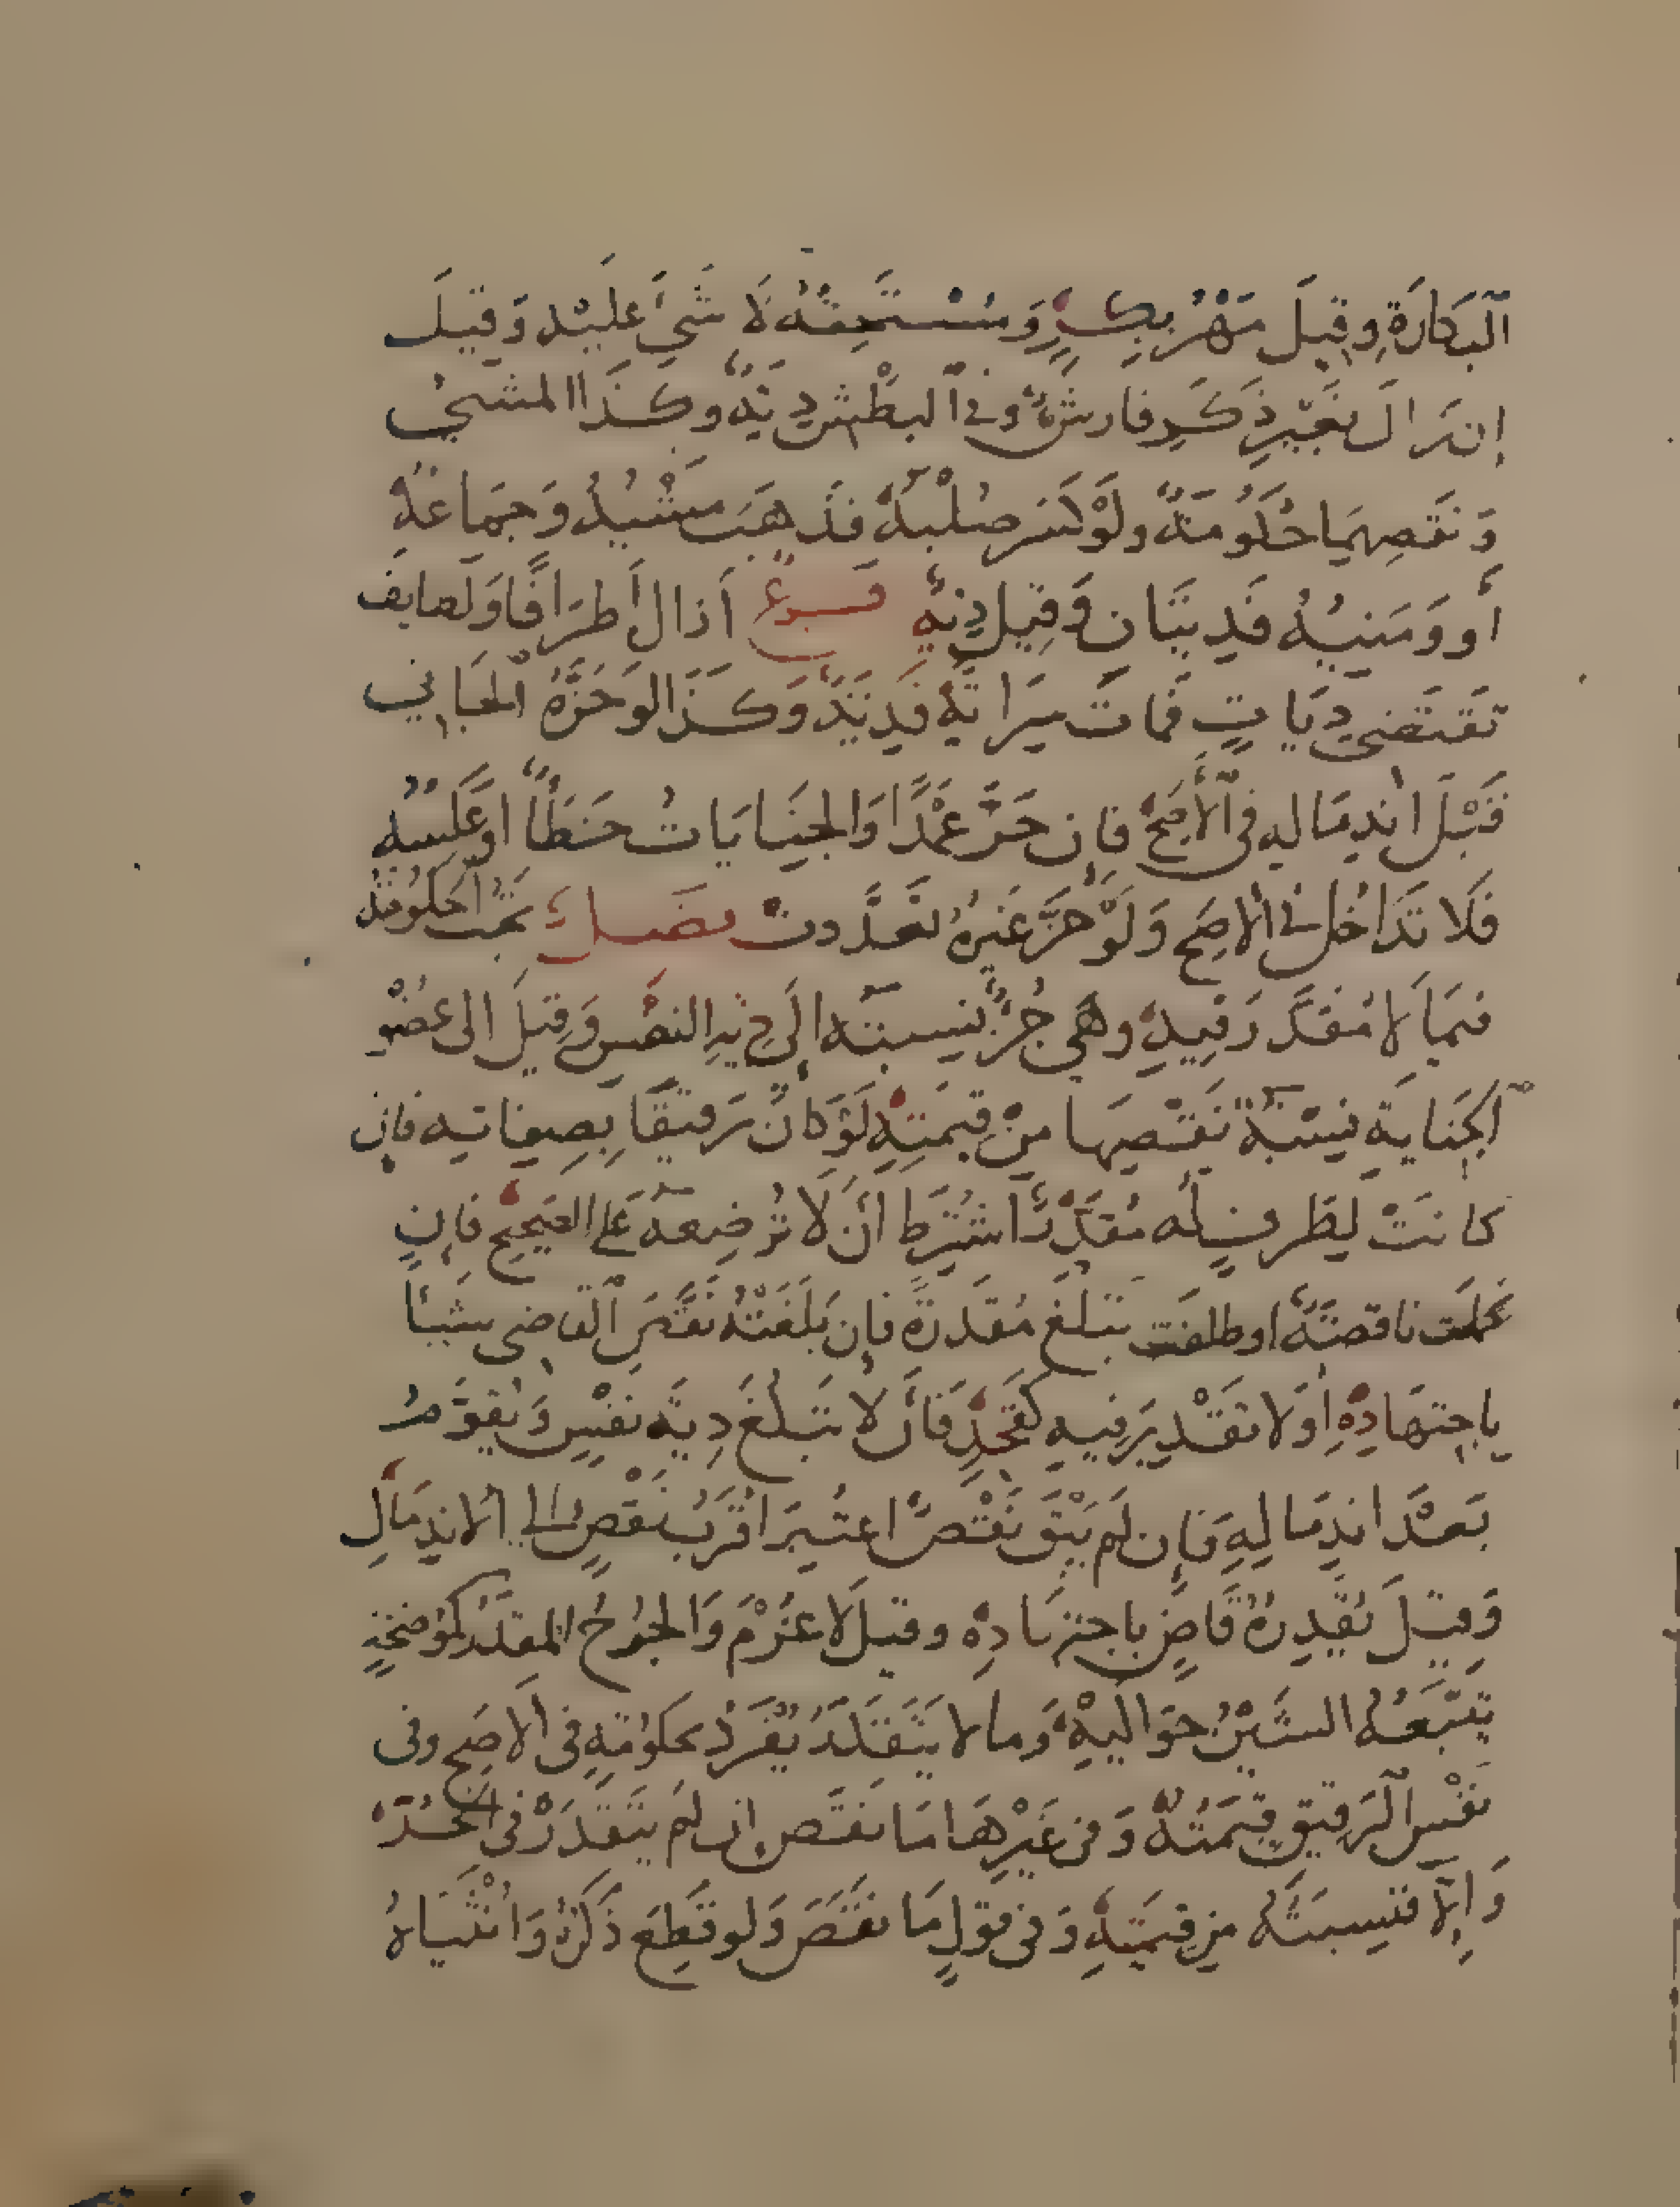 البكارة وقيل مهر بكر ومستحقه لا شيء عليه وقيل
إن زال بغير ذكر فارش وفي البطش دية وكذا المشي
ونقصهما حكومة ولو كسر صلبه فذهب مشيه وجماعه
أو ومنيه فديتان وقيل دية فرع أزال أطرافا ولطايف
تقتضي ديات فمات سراية فدية وكذا لو حزه الجاني
قبل اندماله في الأصح فإن حز عمدا والجنايات خطأ او عكسه
فلا تداخل في الاصح ولو حز غيره تعددت فصل تجب الحكومة
فيما لا مقدر فيه وهي جزء نسبته إلى دية النفس وقيل الى عضو
الجناية نسبة نقصها من قيمته لو كان رقيقا بصفاته فإن
كانت لطرف له مقدر اشترط أن لا ترضعه على الصحيح فإن
ناقصة او تبلغ مقدرة فإن بلغته نقص القاضي شيئا
باجتهاده أو لا تقدير فيه كفخذ فأن لا تبلغ دية نفس ويقوم
بعد اندماله فإن لم يبق نقص اعتبر اقرب نقص الى الاندمال
وقيل يقدره قاض باجتهاده وقيل لا غرم والجرح المقدر كموضحة
يتبعه الشين حواليه وما لا يتقدر يفرد بحكومة في الاصح وفي
نفس الرقيق قيمته وفي غيرها ما نقص إن لم يتقدر في الحر
وإلا فنسبته من قيمته وفي قول ما نقص ولو قطع ذكره وانثياه